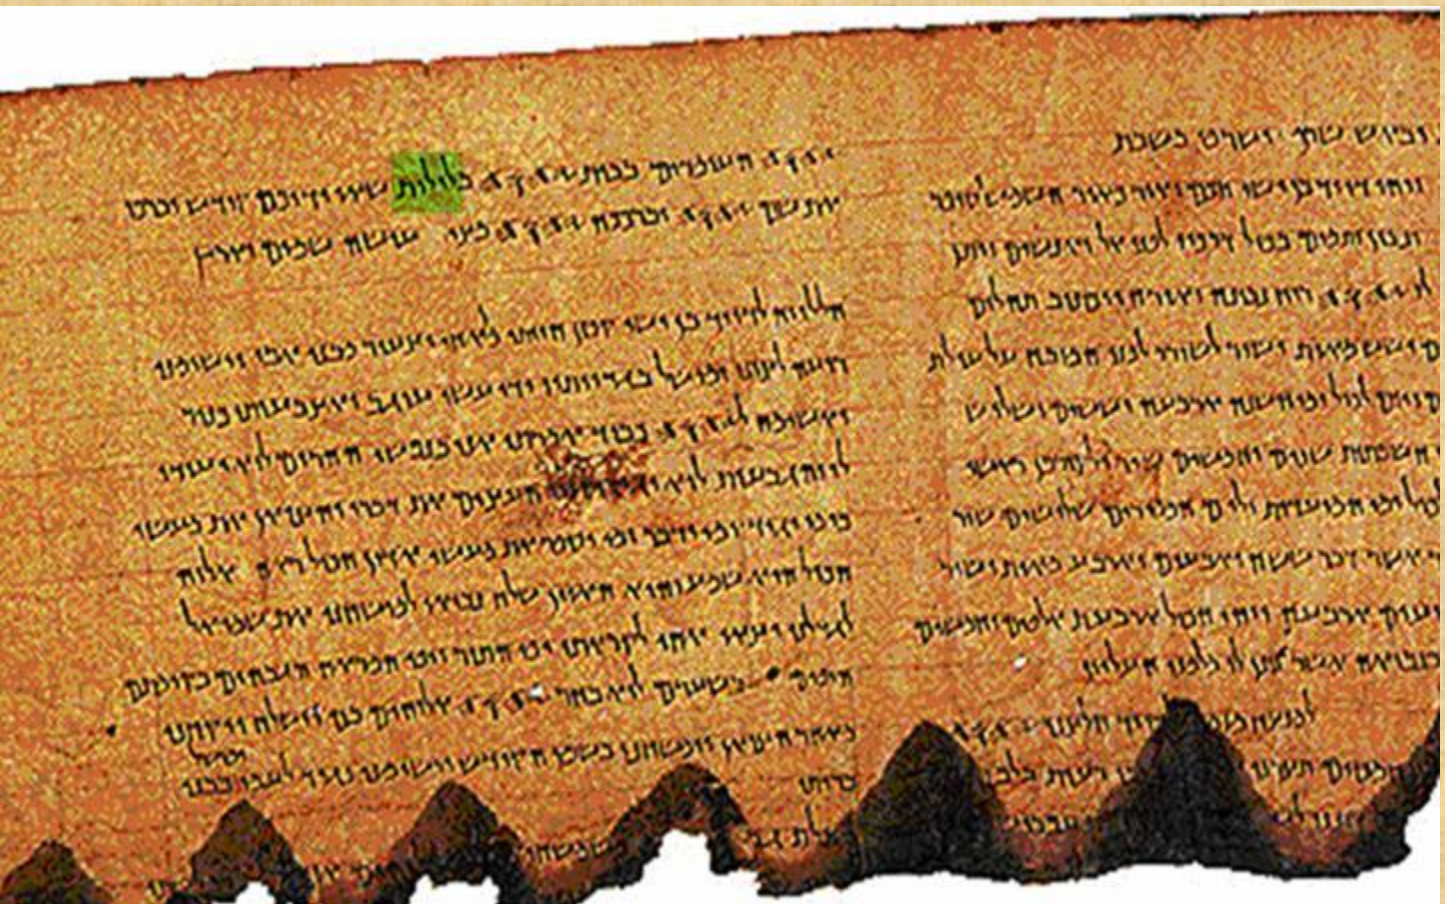 שרוף ישרפו בשבת
ויהי דויד בן ישי חכם ואור כאור השמש וסופר
ונבון ותמים בכול דרכיו לפני אל ואנשים ויתן
לו 𐤉𐤄𐤅𐤄 רוח נבונה ואורה ויכתוב תהלים
ושש מאות ושיר לשורר לפני המזבח על עולת
ויום לכול ימי השנה ארבעה וששים ושלוש
השבתות שנים וחמשים שיר ולקורבן ראשי
ולכול ימי המועדות ולים הכפורים שלושים שיר
אשר דבר ששה וארבעים וארבע מאות ושיר
ארבעה ויהי הכול ארבעת אלפים וחמשים
בנבואה אשר נתן לו מלפני העליון
𐤉𐤄𐤅𐤄 העומדים בבית 𐤉𐤄𐤅𐤄 בלילות שאו ידיכם קודש וברכו
את שם 𐤉𐤄𐤅𐤄 יברככה 𐤉𐤄𐤅𐤄 מציון עושה שמים וארץ
הללויה לדויד בן ישי קטן הייתי מן אחי וצעיר מבני אבי וישימני
רועה לצונו ומושל בגדיותיו ידי עשו עוגב ואצבעותי כנור
ואשימה ל𐤉𐤄𐤅𐤄 כבוד אמרתי אני בנפשי ההרים לוא יעידו
לי והגבעות לוא יגידו העצים את דברי והצואן את מעשי
כי מי יגיד ומי ידבר ומי יספר את מעשי אדון הכול ראה אלוה
הכול הוא שמע והוא האזין שלח נביאו למושחני את שמואל
לגדלני יצאו אחי לקראתו יפי התור ויפי המראה הגבהים בקומתם
היפים בשערם לוא בחר 𐤉𐤄𐤅𐤄 אלוהים בם וישלח ויקחני
ומושל
מאחר הצואן וימשחני בשמן הקודש וישימני נגיד לעמו בבני
בריתו